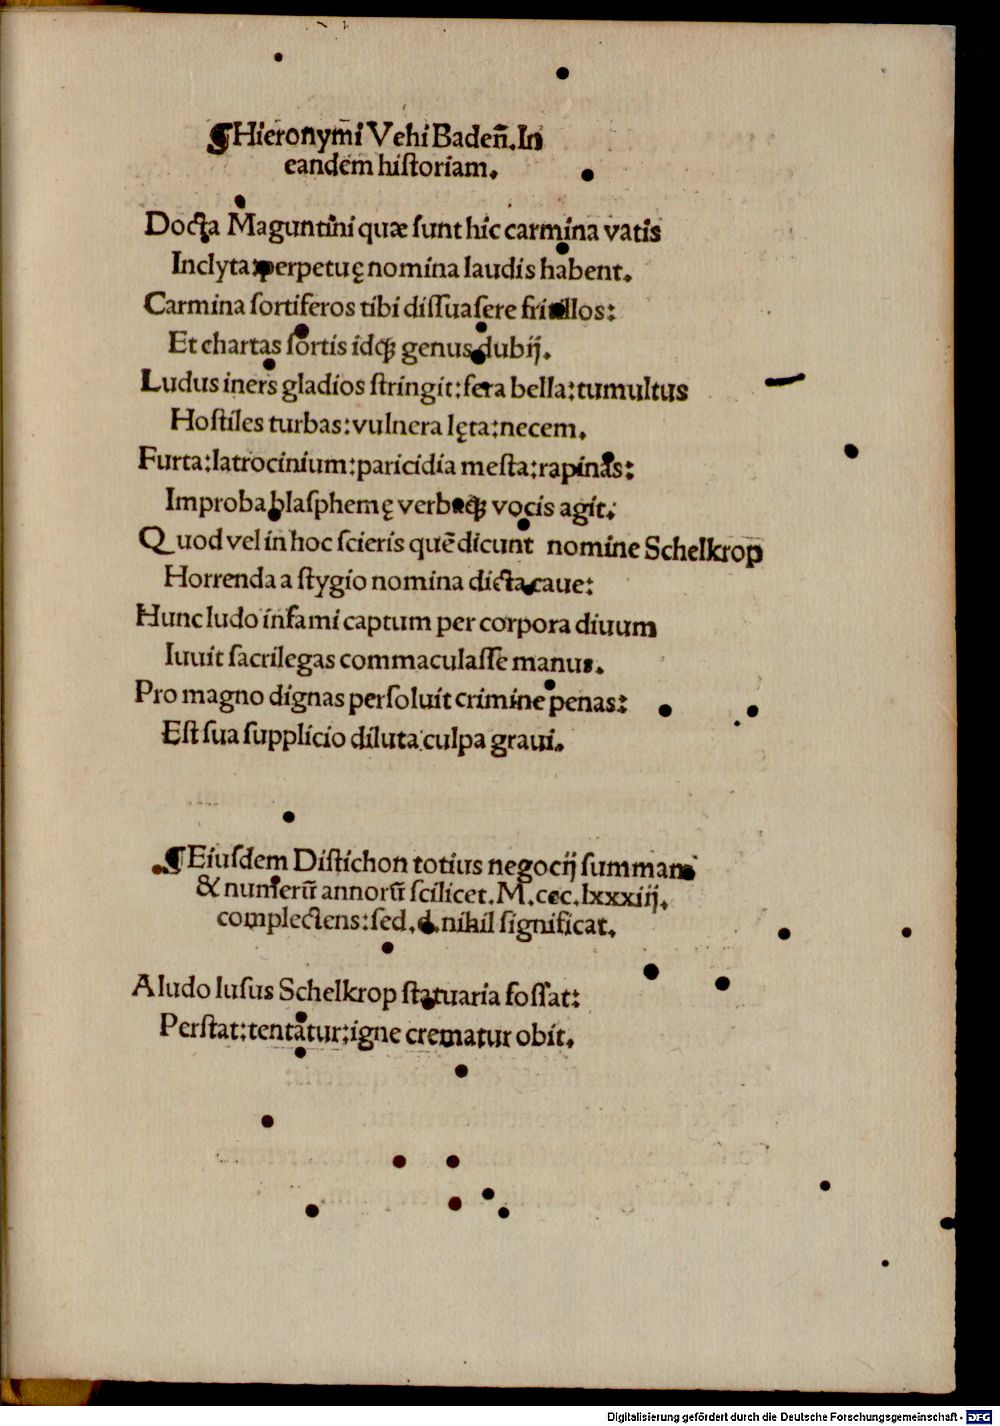 ¶Hieronymi Vehi Badeñ. In
eandem historiam.
Docta Maguntini quæ sunt hic carmina vatis
Inclyta: perpetuę nomina laudis habent.
Carmina sortiferos tibi dissuasere fritillos:
Et chartas sortis idq́ꝫ genus dubij.
Ludus iners gladios stringit: fera bella: tumultus
Hostiles turbas: vulnera lęta: necem.
Furta: latrocinium: paricidia mesta: rapinas:
Improba blasphemę verbaq́ꝫ vocis agit:
Quod vel in hoc scieris quē dicunt nomine Schelkrop
Horrenda a stygio nomina dicta caue:
Hunc ludo infami captum per corpora diuum
Iuuit sacrilegas commaculasse manus.
Pro magno dignas persoluit crimine penas:
Est sua supplicio diluta culpa graui.
¶Eiusdem Distichon totius negocij summam
& numerū annorū scilicet. M. ccc. lxxxiij.
complectens: sed .d. nihil significat.
A ludo lusus Schelkrop statuaria fossat:
Perstat: tentatur: igne crematur obit.
Digitalisierung gefördert durch die Deutsche Forschungsgemeinschaft - DFG